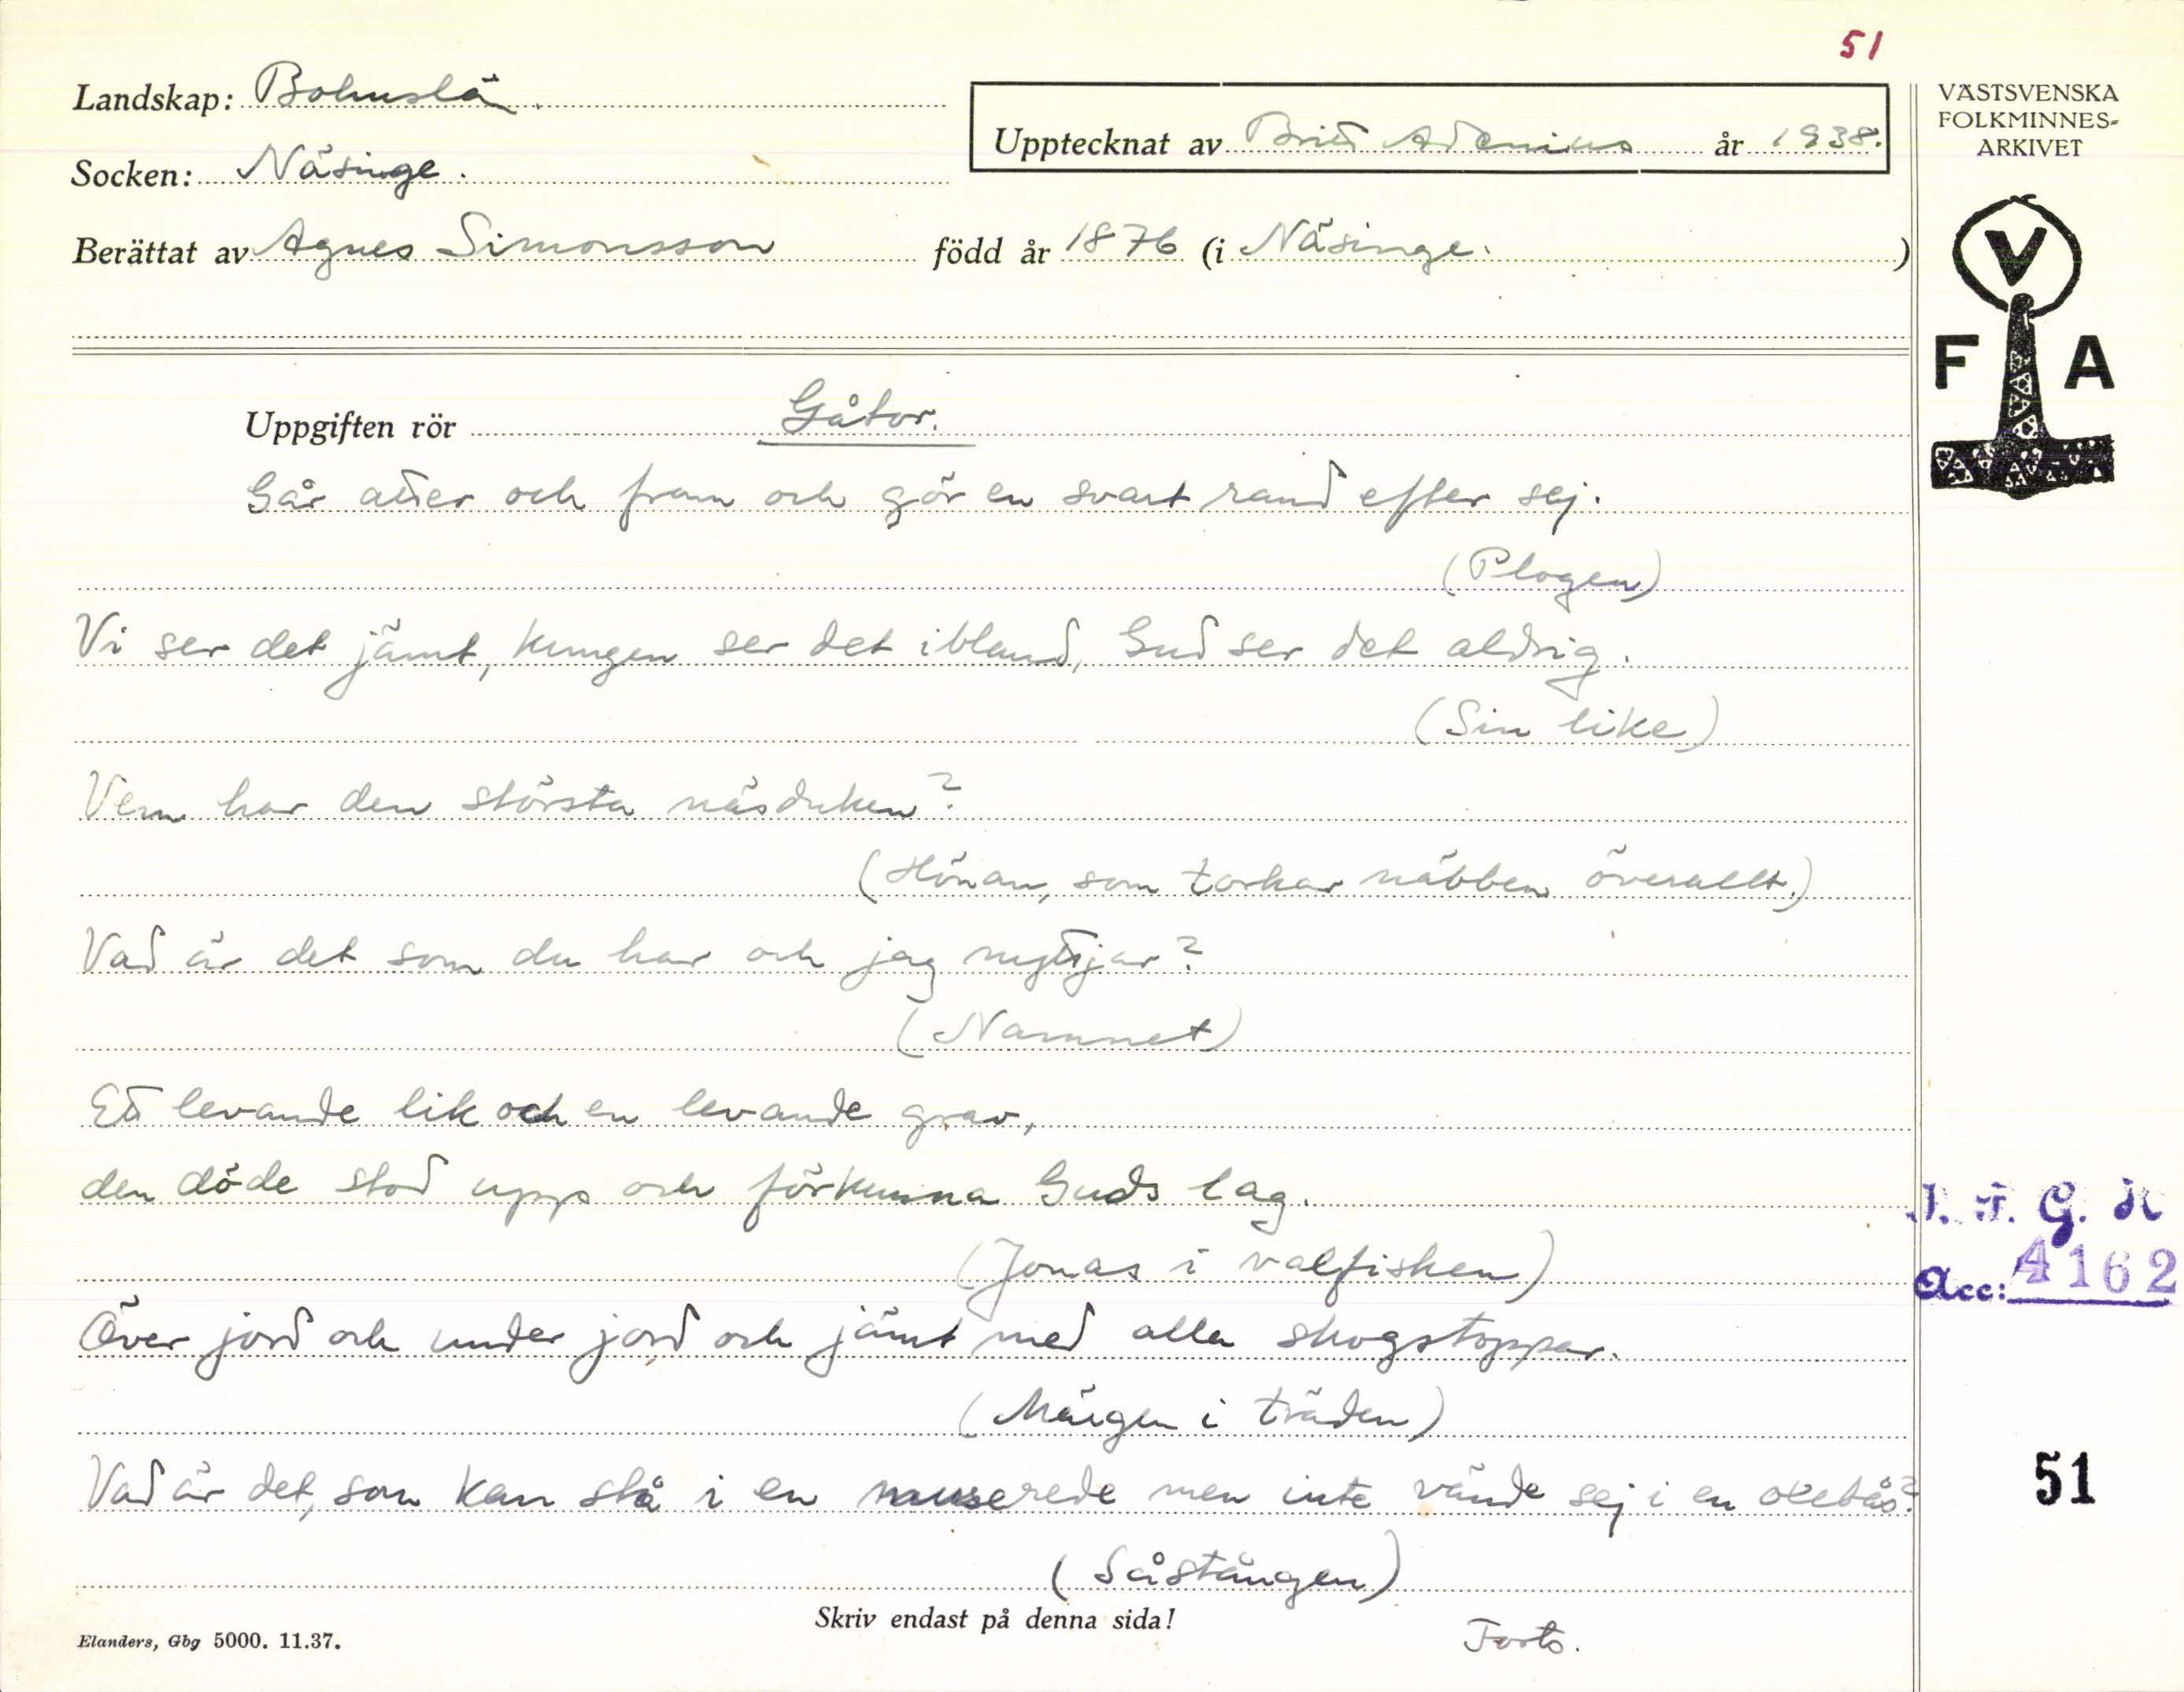 51
Landskap: Bohuslän.
Upptecknat av Britt Adenius år 1938.
Socken: Näsinge.
Berättat av Agnes Simonsson född år 1876 (i Näsinge.)
VÄSTSVENSKA
FOLKMINNES-
ARKIVET
V
F A
Uppgiften rör Gåtor.
Går åtter och fram och gör en svart rand efter sej.
(Plogen)
Vi ser det jämt, kungen ser det ibland, Gud ser det aldrig.
(Sin like)
Vem har den största näsduken?
(Hönan, som torkar näbben överallt.)
Vad är det som du har och jag nyttjar?
(Namnet)
Ett levande lik och en levande grav,
den döde stod upp och förkunna Guds lag.
(Jonas i valfisken)
Över jord och under jord och jämt med alla skogstoppar.
(Märgen i träden)
Vad är det, som kan stå i en muserede men inte vände sej i en oxebås?
(Såstången)
I. F. G. H
Acc: 4162
51
Skriv endast på denna sida!
Elanders, Gbg 5000. 11.37.
Forts.